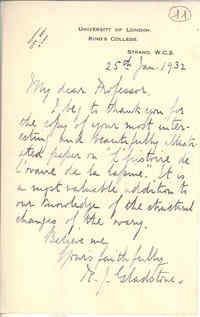 11
University of London.
King's College,
Strand. W.C.2.
25th Jan. 1932
My dear Professor,
I beg to thank you for
the copy of your most inter-
esting and beautifully illustr-
ated paper on "L'histoire de
l'ovaire de la lapine". It is
a most valuable addition to
our knowledge of the structural
changes of the ovary.
Believe me
Yours faithfully
R. J. Gladstone.